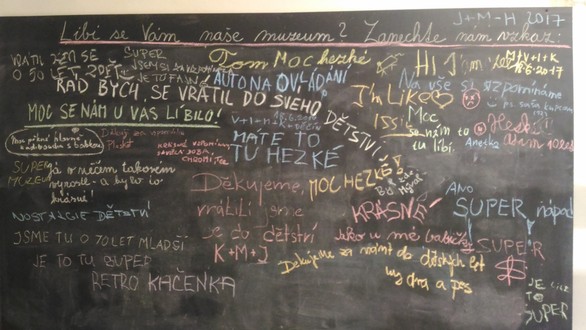 J+M-H 2017
Líbí se Vám naše muzeum? Zanechte nám vzkaz:
VRÁTIL JSEM SE
O 50 LET ZPĚT
SUPER
JE TO FAJN
Tom Moc hezké
AUTO NA OVLÁDÁNÍ
HI I'm
M+V+I+K
2017
RÁD BYCH SE VRÁTIL DO SVÉHO
DĚTSTVÍ
Na vše si vzpomínáme
I'm Like
MOC SE NÁM U VÁS LÍBILO!
V+I+H
MÁTE TO
TU HEZKÉ
Moc
se nám to
tu líbí.
Anetka
Hezké
Děkuji za
SUPER
MUZEUM
Já v něčem takovém
vyrostl - a bylo to
krásné!
Děkujeme,
vrátili jsme
se do dětství
K+M+J
MOC HEZKÉ!
KRÁSNÉ
jako u mé babičky
ANO
SUPER nápad
SUPER
NOSTALGIE DĚTSTVÍ
JSME TU O 70LET MLADŠÍ
JE TO TU SUPER
RETRO KAČENKA
Děkujeme za návrat do dětských let
my dva a pes
JE
TO
SUPER